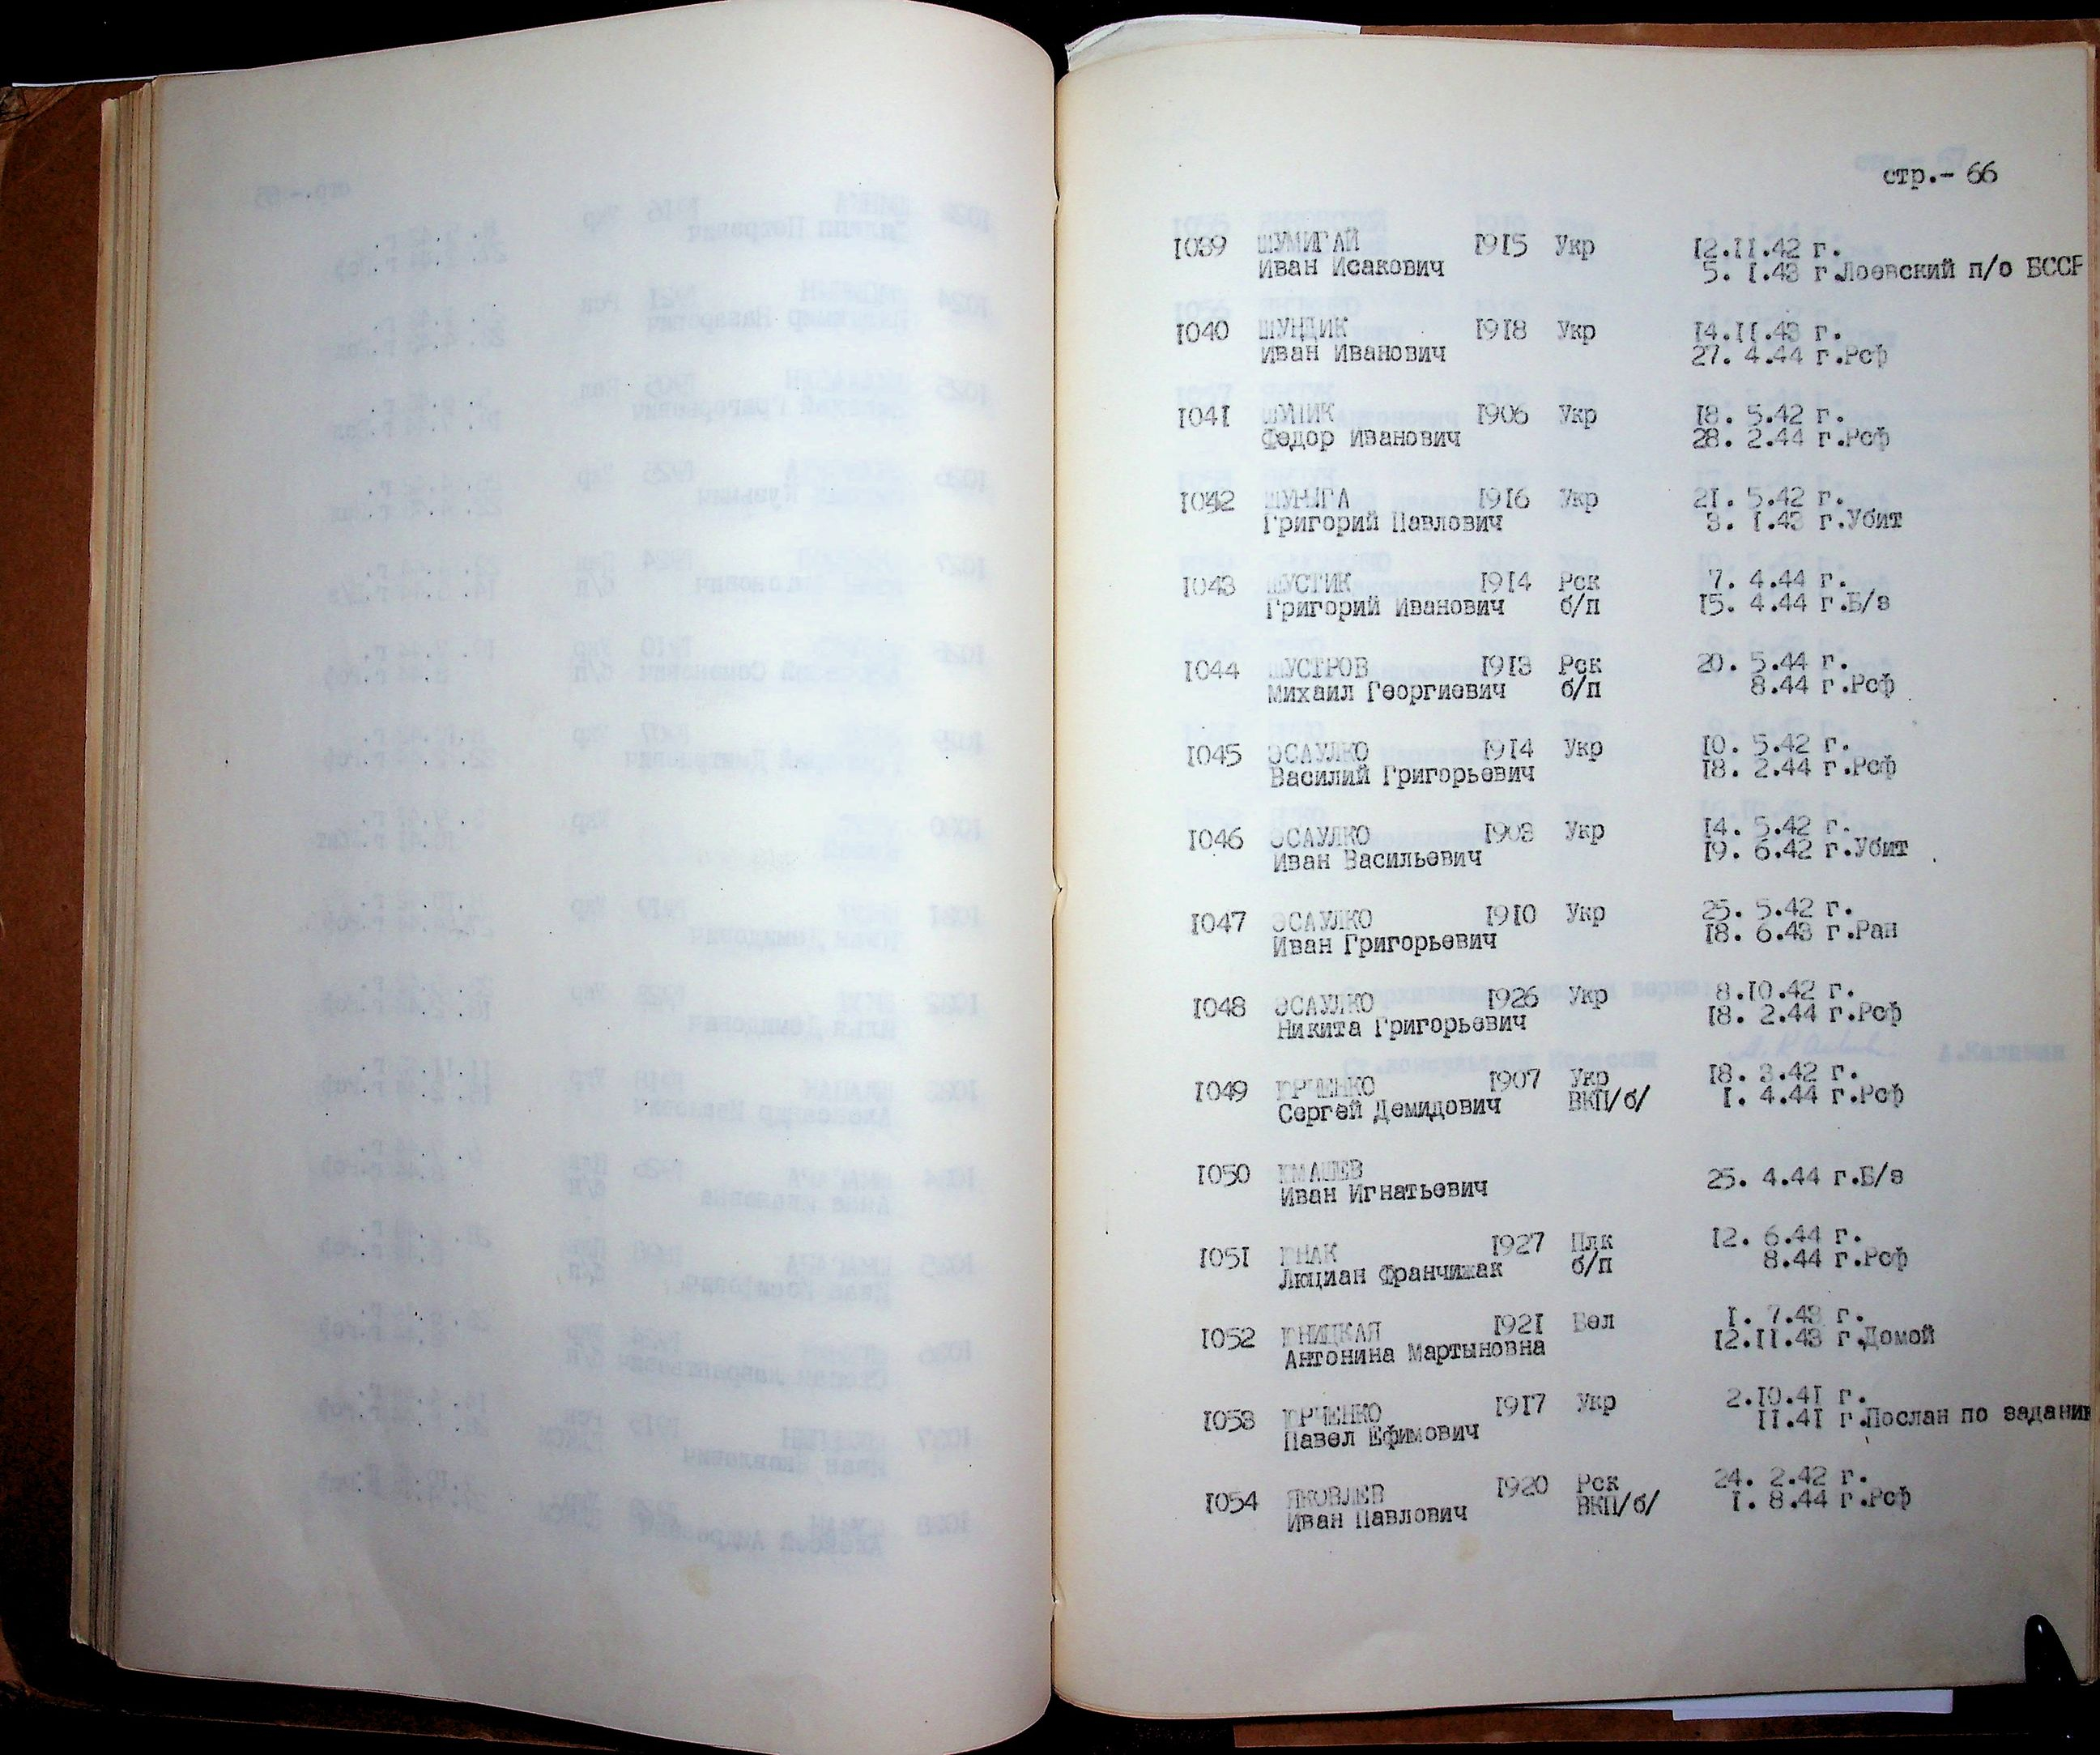 стр.- 66
1039 ШУМИГАЙ 1915 Укр 12.11.42 г.
Иван Исакович 5. 1.43 г.Лоевский п/о БССР
1040 ШУНДИК 1918 Укр 14.11.43 г.
Иван Иванович 27. 4.44 г.Рсф
1041 1906 Укр 18. 5.42 г.
Федор Иванович 28. 2.44 г.Рсф
1042 ШУНЫГА 1916 Укр 21. 5.42 г.
Григорий Павлович 3. 1.43 г.Убит
1043 ШУСТИК 1914 Рск 7. 4.44 г.
Григорий Иванович б/п 15. 4.44 г.Б/з
1044 ШУСТРОВ 1913 Рск 20. 5.44 г.
Михаил Георгиевич б/п 8.44 г.Рсф
1045 ЭСАУЛКО 1914 Укр 10. 5.42 г.
Василий Григорьевич 18. 2.44 г.Рсф
1046 ЭСАУЛКО 1903 Укр 14. 5.42 г.
Иван Васильевич 19. 6.42 г.Убит
1047 ЭСАУЛКО 1910 Укр 25. 5.42 г.
Иван Григорьевич 18. 6.43 г.Ран
1048 ЭСАУЛКО 1926 Укр 8.10.42 г.
Никита Григорьевич 18. 2.44 г.Рсф
1049 1907 Укр 18. 3.42 г.
Сергей Демидович ВКП/б/ 1. 4.44 г.Рсф
1050 ЮМАШЕВ
Иван Игнатьевич 25. 4.44 г.Б/з
1051 ЮНАК 1927 Плк 12. 6.44 г.
Люциан Франчижак б/п 8.44 г.Рсф
1052 ЮНИЦКАЯ 1921 Бел 1. 7.43 г.
Антонина Мартыновна 12.11.43 г.Домой
1053 ЮРЧЕНКО 1917 Укр 2.10.41 г.
Павел Ефимович 11.41 г.Послан по задани
1054 ЯКОВЛЕВ 1920 Рск 24. 2.42 г.
Иван Павлович ВКП/б/ 1. 8.44 г.Рсф